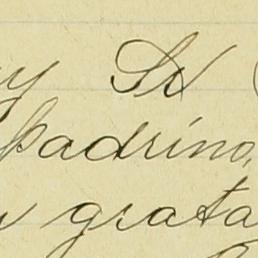 y Sr
padrino,
grata